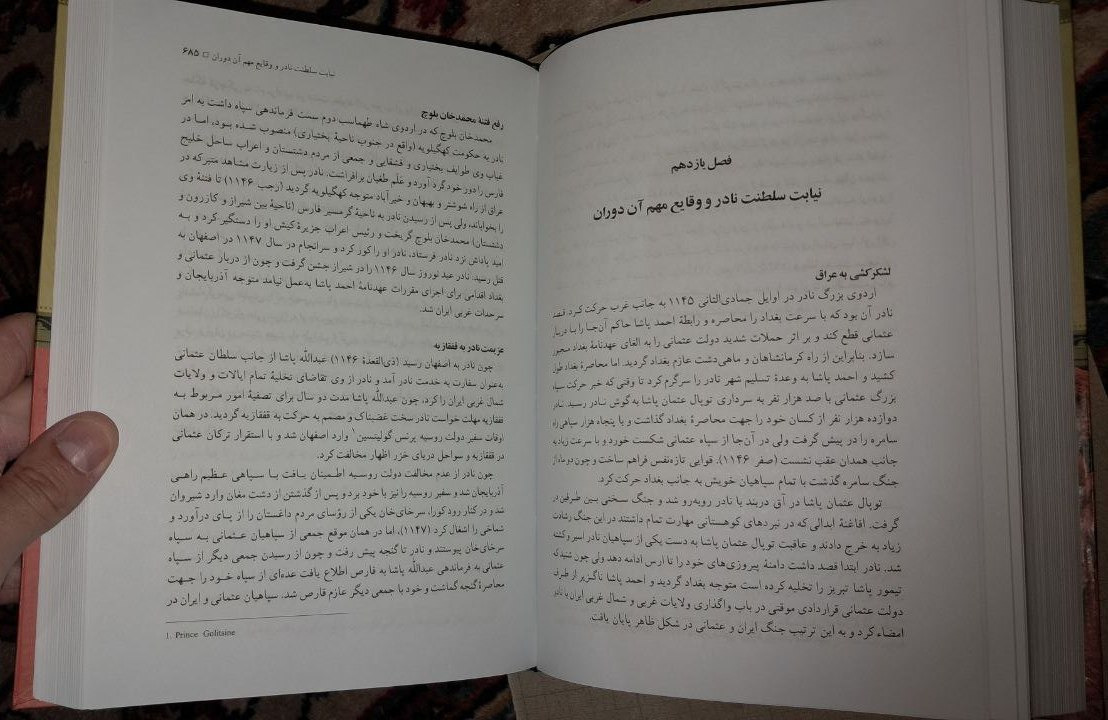 فصل یازدهم
نیابت سلطنت نادر و وقایع مهم آن دوران
لشکرکشی به عراق
اردوی بزرگ نادر در اوایل جمادی‌الثانی ۱۱۴۵ به جانب غرب حرکت کرد. قصد
نادر آن بود که با سرعت بغداد را محاصره و رابطهٔ احمد پاشا حاکم آن‌جا را با دربار
عثمانی قطع کند و بر اثر حملات شدید دولت عثمانی را به الغای عهدنامهٔ بغداد مجبور
سازد. بنابراین از راه کرمانشاهان و ماهی‌دشت عازم بغداد گردید. اما محاصرهٔ بغداد طول
کشید و احمد پاشا به وعدهٔ تسلیم شهر نادر را سرگرم کرد تا وقتی که خبر حرکت سپاه
بزرگ عثمانی با صد هزار نفر به سرداری توپال عثمان پاشا به گوش نادر رسید. نادر
دوازده هزار نفر از کسان خود را جهت محاصرهٔ بغداد گذاشت و با پنجاه هزار سپاهی راه
سامره را در پیش گرفت ولی در آن‌جا از سپاه عثمانی شکست خورد و با سرعت زیاد به
جانب همدان عقب نشست (صفر ۱۱۴۶). قوایی تازه‌نفس فراهم ساخت و چون دو ماه از
جنگ سامره گذشت با تمام سپاهیان خویش به جانب بغداد حرکت کرد.
توپال عثمان پاشا در آق دربند با نادر روبه‌رو شد و جنگ سختی بین طرفین در
گرفت. افاغنهٔ ابدالی که در نبردهای کوهستانی مهارت تمام داشتند در این جنگ رشادت
زیاد به خرج دادند و عاقبت توپال عثمان پاشا به دست یکی از سپاهیان نادر اسیر و کشته
شد. نادر ابتدا قصد داشت دامنهٔ پیروزی‌های خود را تا ارس ادامه دهد ولی چون شنید که
تیمور پاشا تبریز را تخلیه کرده است متوجه بغداد گردید و احمد پاشا ناگزیر از طرف
دولت عثمانی قراردادی موقتی در باب واگذاری ولایات غربی و شمال غربی ایران با نادر
امضاء کرد و به این ترتیب جنگ ایران و عثمانی در شکل ظاهر پایان یافت.
نیابت سلطنت نادر و وقایع مهم آن دوران □ ۶۸۵
رفع فتنهٔ محمدخان بلوچ
محمدخان بلوچ که در اردوی شاه طهماسب دوم سمت فرماندهی سپاه داشت به امر
نادر به حکومت کهگیلویه (واقع در جنوب ناحیهٔ بختیاری) منصوب شده بود، اما در
غیاب وی طوایف بختیاری و قشقایی و جمعی از مردم دشتستان و اعراب ساحل خلیج
فارس را دور خود گرد آورد و علم طغیان برافراشت. نادر پس از زیارت مشاهد متبرکه در
عراق از راه شوشتر و بهبهان و خیرآباد متوجه کهگیلویه گردید (رجب ۱۱۴۶) تا فتنهٔ وی
را بخواباند، ولی پس از رسیدن نادر به ناحیهٔ گرمسیر فارس (ناحیهٔ بین شیراز و کازرون و
دشتستان) محمدخان بلوچ گریخت و رئیس اعراب جزیرهٔ کیش او را دستگیر کرد و به
امید پاداش نزد نادر فرستاد. نادر او را کور کرد و سرانجام در سال ۱۱۴۷ در اصفهان به
قتل رسید. نادر عید نوروز سال ۱۱۴۶ را در شیراز جشن گرفت و چون از دربار عثمانی و
بغداد اقدامی برای اجرای مقررات عهدنامهٔ احمد پاشا به‌عمل نیامد متوجه آذربایجان و
سرحدات غربی ایران شد.
عزیمت نادر به قفقازیه
چون نادر به اصفهان رسید (ذی‌القعدة ۱۱۴۶) عبدالله پاشا از جانب سلطان عثمانی
به‌عنوان سفارت به خدمت نادر آمد و نادر از وی تقاضای تخلیهٔ تمام ایالات و ولایات
شمال غربی ایران را کرد، چون عبدالله پاشا مدت دو سال برای تصفیهٔ امور مربوط به
قفقازیه مهلت خواست نادر سخت غضبناک و مصمم به حرکت به قفقازیه گردید. در همان
اوقات سفیر دولت روسیه پرنس گولیتسین۱ وارد اصفهان شد و با استقرار ترکان عثمانی
در قفقازیه و سواحل دریای خزر اظهار مخالفت کرد.
چون نادر از عدم مخالفت دولت روسیه اطمینان یافت با سپاهی عظیم راهی
آذربایجان شد و سفیر روسیه را نیز با خود برد و پس از گذشتن از دشت مغان وارد شیروان
شد و در کنار رود کورا، سرخای‌خان یکی از رؤسای مردم داغستان را از پای درآورد و
شماخی را اشغال کرد (۱۱۴۷)، اما در همان موقع جمعی از سپاهیان عثمانی به سپاه
سرخای‌خان پیوستند و نادر تا گنجه پیش رفت و چون از رسیدن جمعی دیگر از سپاه
عثمانی به فرماندهی عبدالله پاشا به قارص اطلاع یافت عده‌ای از سپاه خود را جهت
محاصرهٔ گنجه گماشت و خود با جمعی دیگر عازم قارص شد. سپاهیان عثمانی و ایران در
1. Prince Golitsine